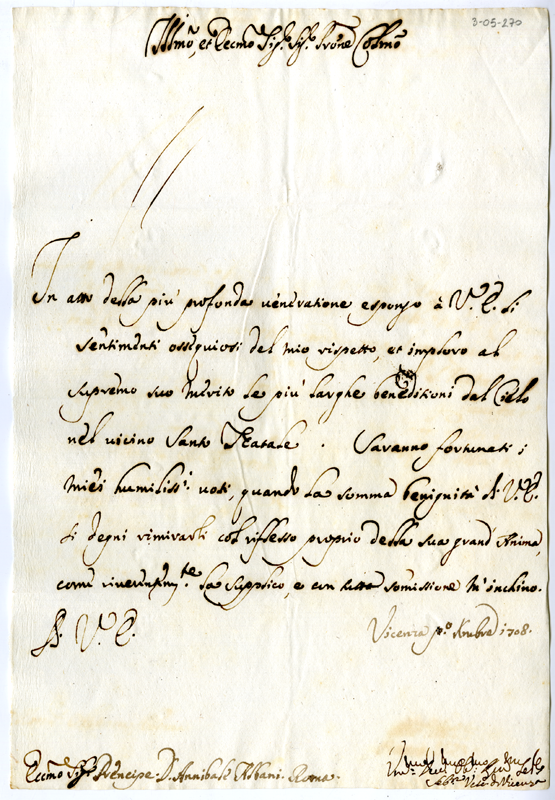 3-05-270
Illmo, et Eccmo Sigr. Sigr. Prone Colmo
In atto della più profonda ueneratione espongo à V. E. li
sentimenti ossequiosi del mio rispetto, et imploro al
supremo suo merito le più larghe beneditioni dal Cielo
nel uicino Santo Natale. Saranno fortunati i
miei humilissi. uoti, quando la somma benignità di V. E.
si degni rimirarli col riflesso proprio della sua grand'Anima,
come riuerentemte. la supplico, e con tutta somissione m'inchino.
Di V. E.
Vicenza po. Xmbre 1708.
Eccmo Sigr. Prencipe Dn. Annibale Albani. Roma.